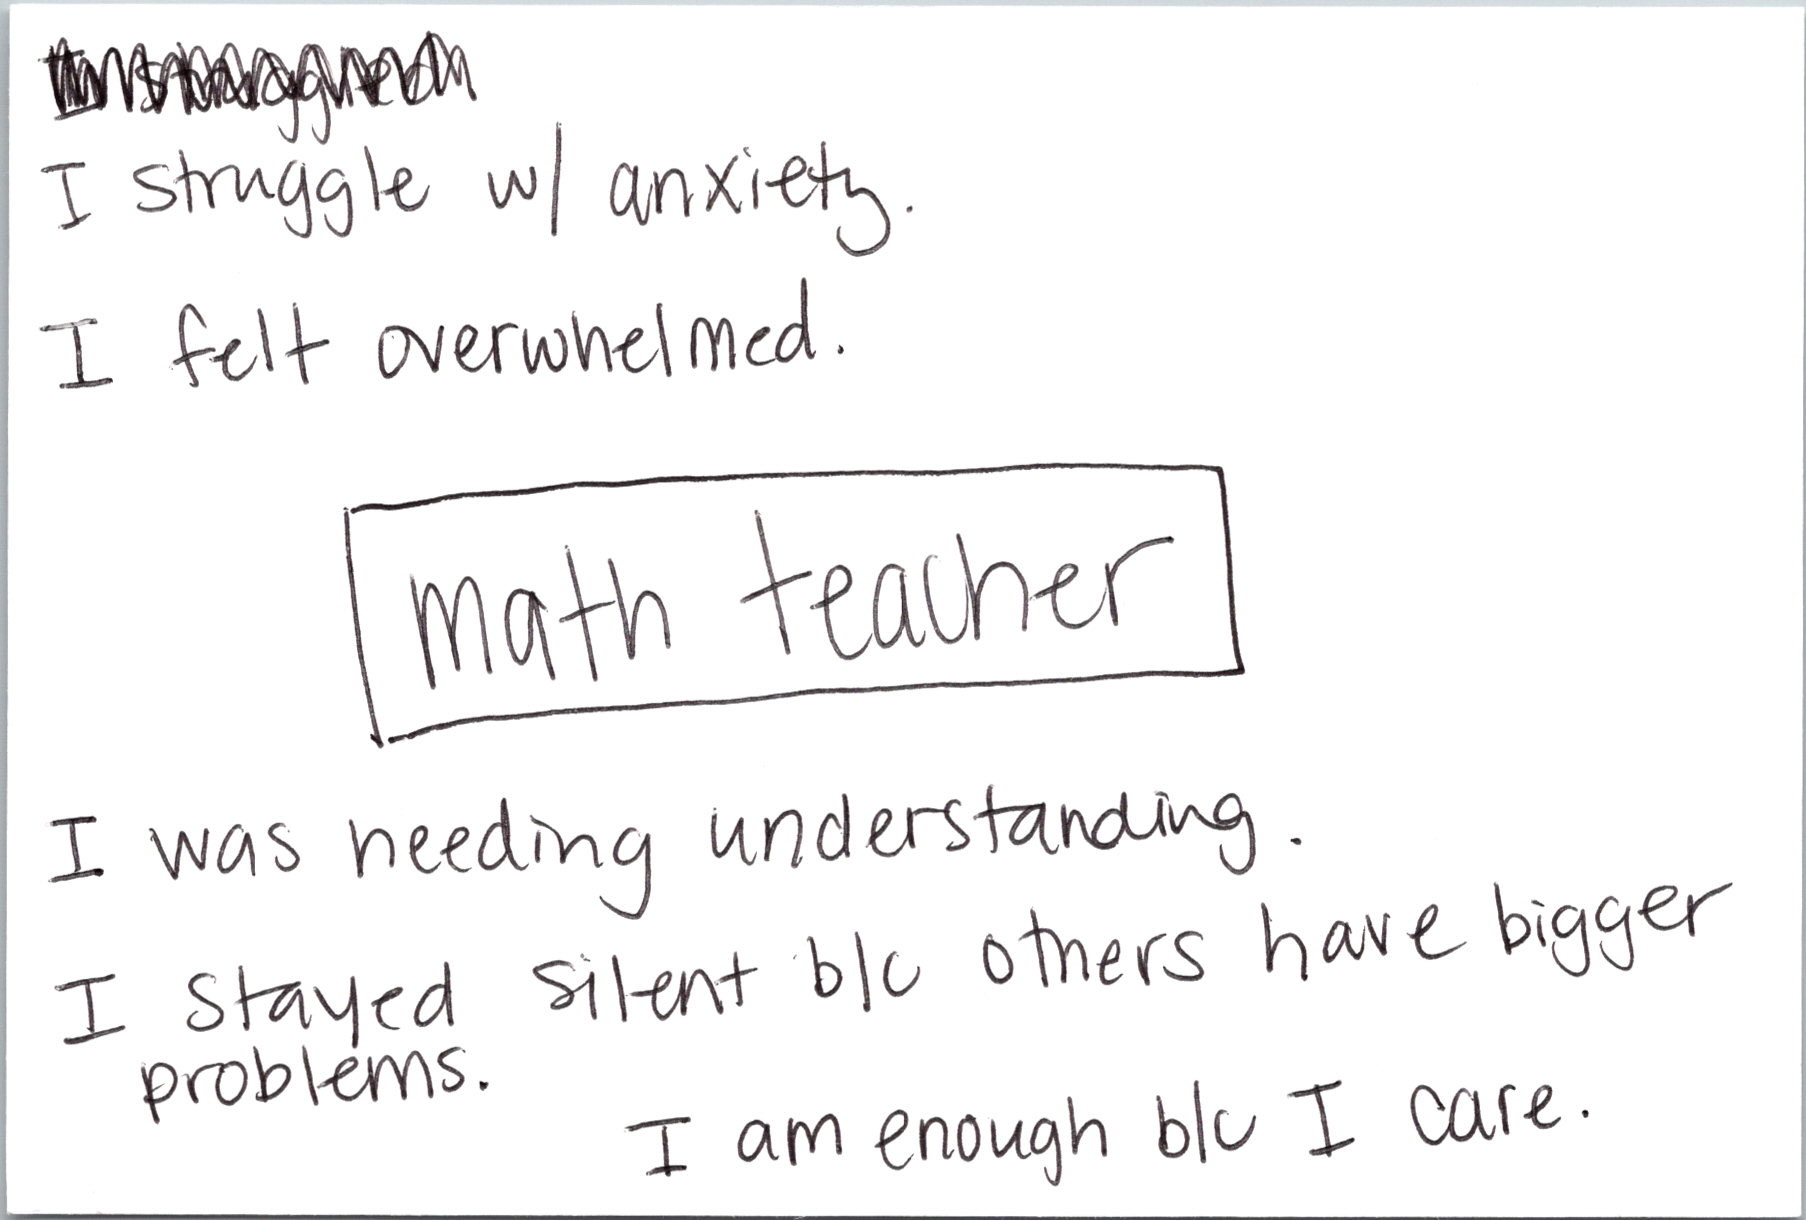 I struggle w/ anxiety.
I felt overwhelmed.
math teacher
I was needing understanding.
I stayed silent b/c others have bigger
problems.
I am enough b/c I care.